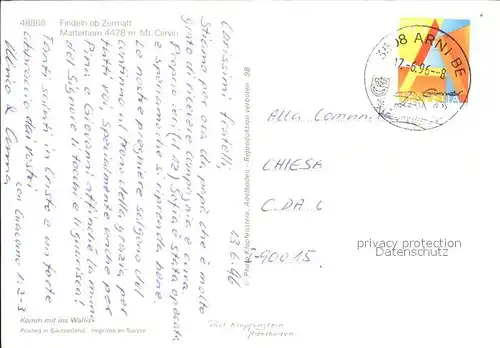 48866 Findeln ob Zermatt
Matterhorn 4478 m. Mt. Cervin
13.6.96
Carissimi fratelli,
Stiamo per ora da papà che è molto
grato di ricevere compagnia e cura.
Proprio ieri (il 12) Sofia è stata operata
e speriamo che si riprenda bene.
Le nostre preghiere salgono del
continuo al trono della grazia, per
tutti voi, specialmente anche per
Pina e Giovanni affinché la mano
del Signore li tocchi e li guarisca!
Tanti saluti in Cristo e un forte
abbraccio dai vostri
con Giacomo 1:2-3
& Anna
Komm mit ins Wallis
Posted in Switzerland Imprimé en Suisse
© Photo Klopfenstein, Adelboden - Reproduktion verboten 98
Photo Klopfenstein
Adelboden
08 ARNI BE
12.-6.96-8
A
Alla
CHIESA
C.DA C
I-90015
privacy protection
Datenschutz